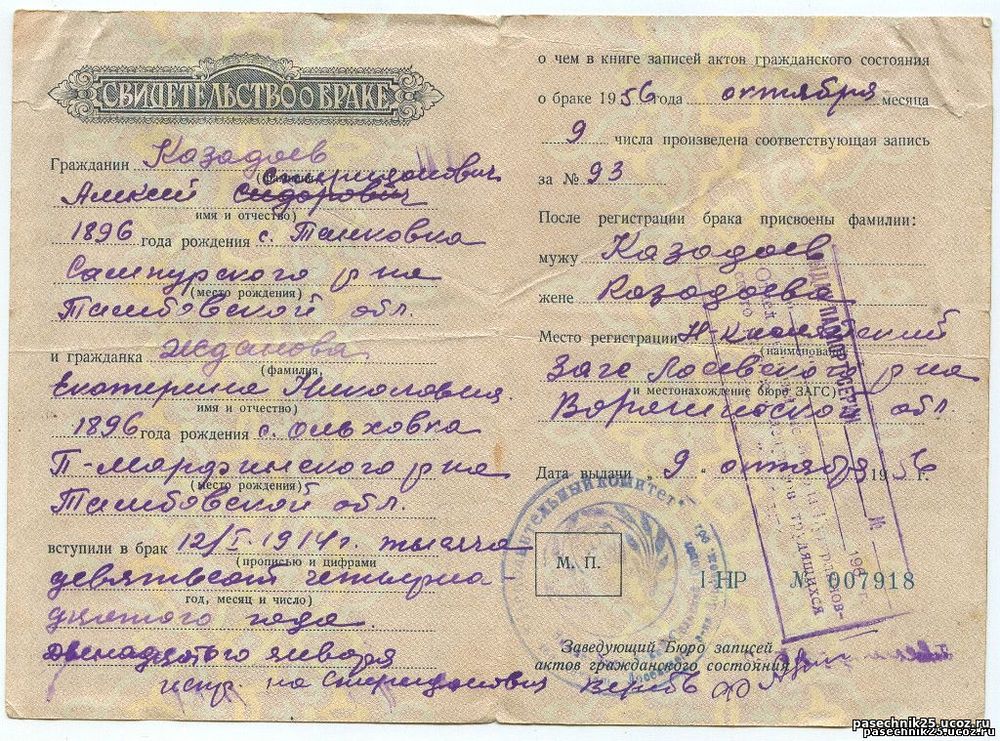 СВИДЕТЕЛЬСТВО о БРАКЕ
Гражданин Казадаев
(фамилия,
Спиридонович
Алексей Сидорович
имя и отчество)
1896 года рождения с. Тамковка
Сампурского р-на
(место рождения)
Тамбовской обл.
и гражданка Жданова
(фамилия,
Екатерина Николаевна.
имя и отчество)
1896 года рождения с. Ольховка
П-Марфинского р-на
(место рождения)
Тамбовской обл.
вступили в брак 12/I-1914 г. тысяча
(прописью и цифрами
девятьсот четырна-
год, месяц и число)
дцатого года
двенадцатого января
испр. на Спиридонович
о чем в книге записей актов гражданского состояния
о браке 1956 года октября месяца
9 числа произведена соответствующая запись
за № 93
После регистрации брака присвоены фамилии:
мужу Казадаев
жене Казадаева
Место регистрации
(наименование
Загс Лосевского р-на
и местонахождение бюро ЗАГС)
Воронежской обл.
Дата выдачи „9" октября 1956 г.
М. П.
I-НР № 007918
Заведующий Бюро записей
актов гражданского состояния
ПАСПОРТ
№
196
трудящихся
pasechnik25.ucoz.ru
pasechnik25.ucoz.ru